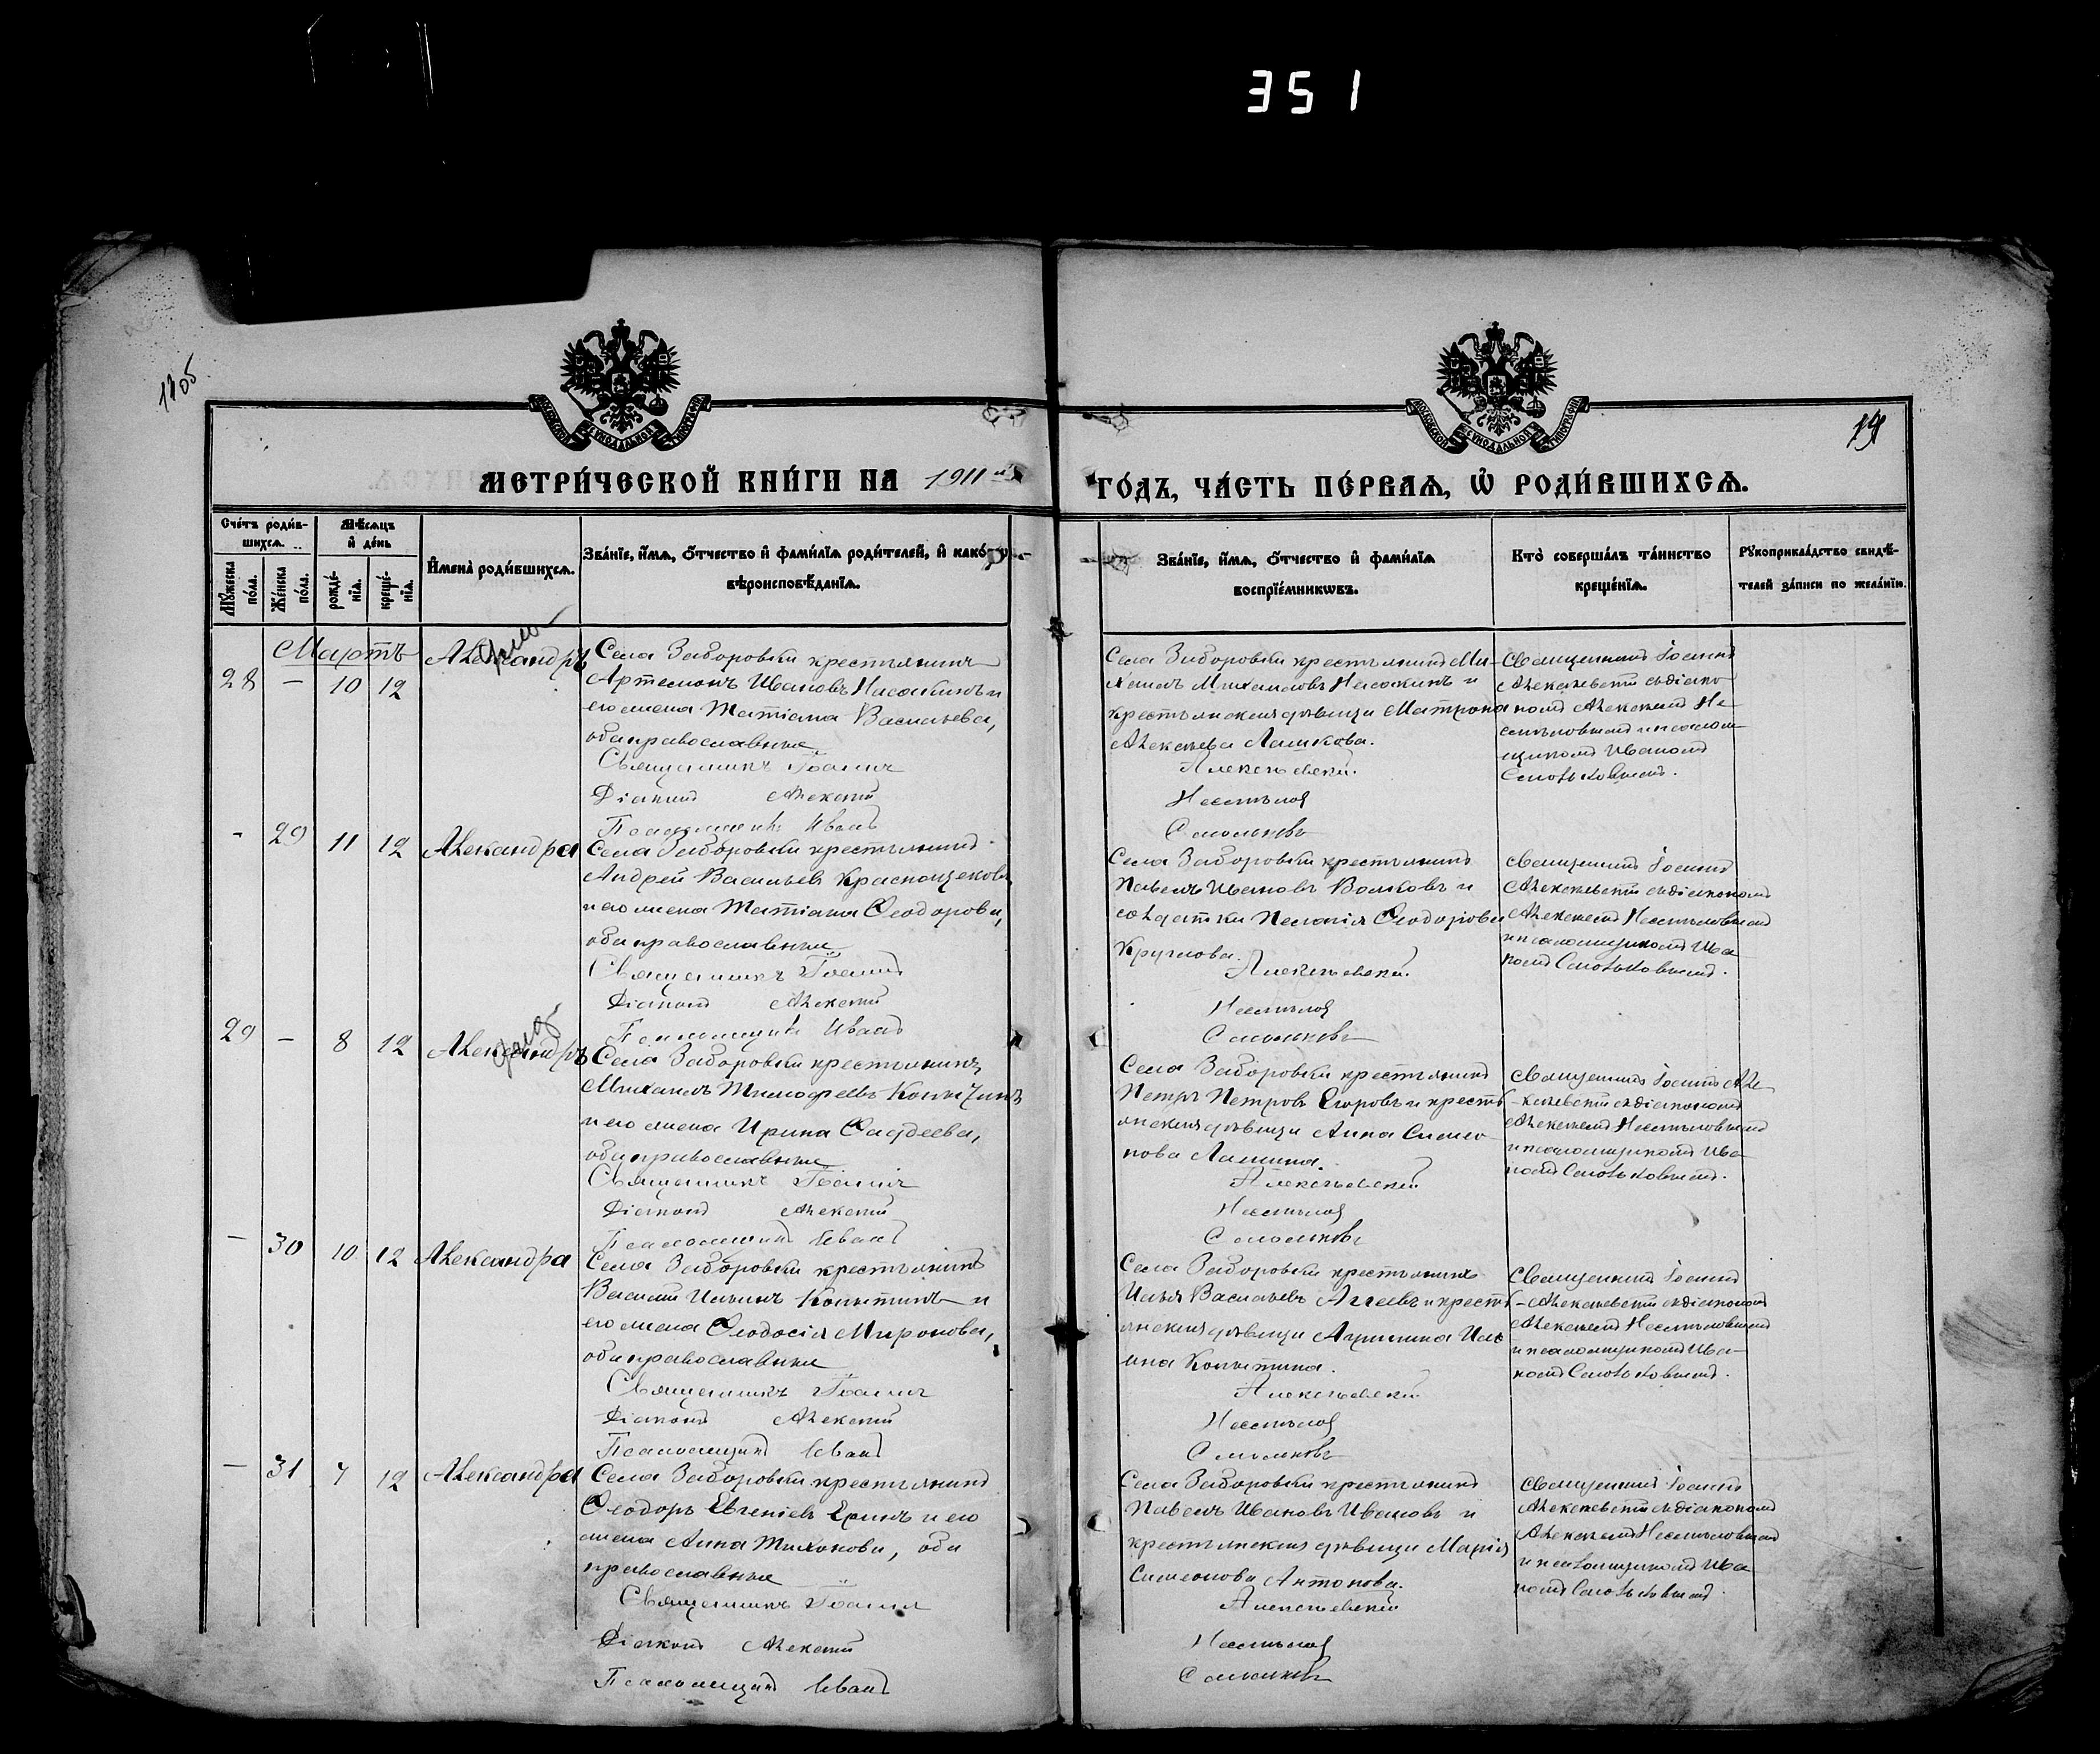 351
1105
19
МОСКОВСКОЙ СѴНОДАЛЬНОЙ ТИПОГРАФІИ
МОСКОВСКОЙ СѴНОДАЛЬНОЙ ТИПОГРАФІИ
МЕТРИ́ЧЕСКОЙ КНИ́ГИ НА 1911й
ГО́ДЪ, ЧА́СТЬ ПЕ́РВАѦ, Ѡ҆ РОДИ́ВШИХСѦ.
Сче́тъ роди́в-
шихсѧ.
Мѣ́сѧцъ
и҆ де́нь
Мꙋ́жеска по́ла.
Же́нска по́ла.
рожде́нїѧ.
креще́нїѧ.
И҆мена̀ роди́вшихсѧ.
Зва́нїе, и҆́мѧ, ѻ҆́тчество и҆ фами́лїѧ роди́телей, и҆ како́гѡ
вѣроисповѣ́данїѧ.
Зва́нїе, и҆́мѧ, ѻ҆́тчество и҆ фами́лїѧ
воспрїе́мникѡвъ.
Кто̀ соверша́лъ та́инство
креще́нїѧ.
Рꙋкоприкла́дство свидѣ́-
телей за́писи по жела́нїю.
Мартъ
28 — 10 12
Александръ
Села Заборовки крестьянинъ
Артемонъ Ивановъ Насакинъ и
его жена Татіана Васильева,
оба православные
Священникъ Іоаннъ
Діаконъ Алексѣй
Псаломщикъ Иванъ
Села Заборовки крестьянинъ Ми-
хаилъ Михаиловъ Насакинъ и
крестьянская дѣвица Матрона
Алексѣева Лашкова.
Алексѣевскій.
Смольковъ
Священникъ Іоаннъ
Алексѣевскій съ діако-
номъ Алексѣемъ Не-
и псалом-
щикомъ Иваномъ
Смольковымъ.
— 29 11 12
Александра
Села Заборовки крестьянинъ
Андрей Васильевъ Краснощековъ
и его жена Татіана Ѳеодорова,
оба православные
Священникъ Іоаннъ
Діаконъ Алексѣй
Псаломщикъ Иванъ
Села Заборовки крестьянинъ
Павелъ Ивановъ Волковъ и
солдатка Пелагія Ѳеодорова
Круглова.
Алексѣевскій.
Смольковъ
Священникъ Іоаннъ
Алексѣевскій съ діакономъ
Алексѣемъ
и псаломщикомъ Ива-
номъ Смольковымъ.
29 — 8 12
Александръ
Села Заборовки крестьянинъ
Михаилъ Тимофеевъ Копытинъ
и его жена Ирина Фаддеева,
оба православные
Священникъ Іоаннъ
Діаконъ Алексѣй
Псаломщикъ Иванъ
Села Заборовки крестьянинъ
Петръ Петровъ Егоровъ и кресть-
янская дѣвица Анна Симео-
нова Лашина.
Алексѣевскій
Смольковъ
Священникъ Іоаннъ Але-
ксѣевскій съ діакономъ
Алексѣемъ
и псаломщикомъ Ива-
номъ Смольковымъ.
— 30 10 12
Александра
Села Заборовки крестьянинъ
Василій Ильинъ Копытинъ и
его жена Ѳеодосія Миронова,
оба православные
Священникъ Іоаннъ
Діаконъ Алексѣй
Псаломщикъ Иванъ
Села Заборовки крестьянинъ
Илья Васильевъ Агеевъ и кресть-
янская дѣвица Акулина Иль-
ина Копытина.
Алексѣевскій
Смольковъ
Священникъ Іоаннъ
Алексѣевскій съ діакономъ
Алексѣемъ
и псаломщикомъ Ива-
номъ Смольковымъ.
— 31 7 12
Александра
Села Заборовки крестьянинъ
Ѳеодоръ Евгеніевъ и его
жена Анна Тихонова, оба
православные
Священникъ Іоаннъ
Діаконъ Алексѣй
Псаломщикъ Иванъ
Села Заборовки крестьянинъ
Павелъ Ивановъ Ивановъ и
крестьянская дѣвица Марія
Симеонова Антонова.
Алексѣевскій
Смольковъ
Священникъ Іоаннъ
Алексѣевскій съ діакономъ
Алексѣемъ
и псаломщикомъ Ива-
номъ Смольковымъ.